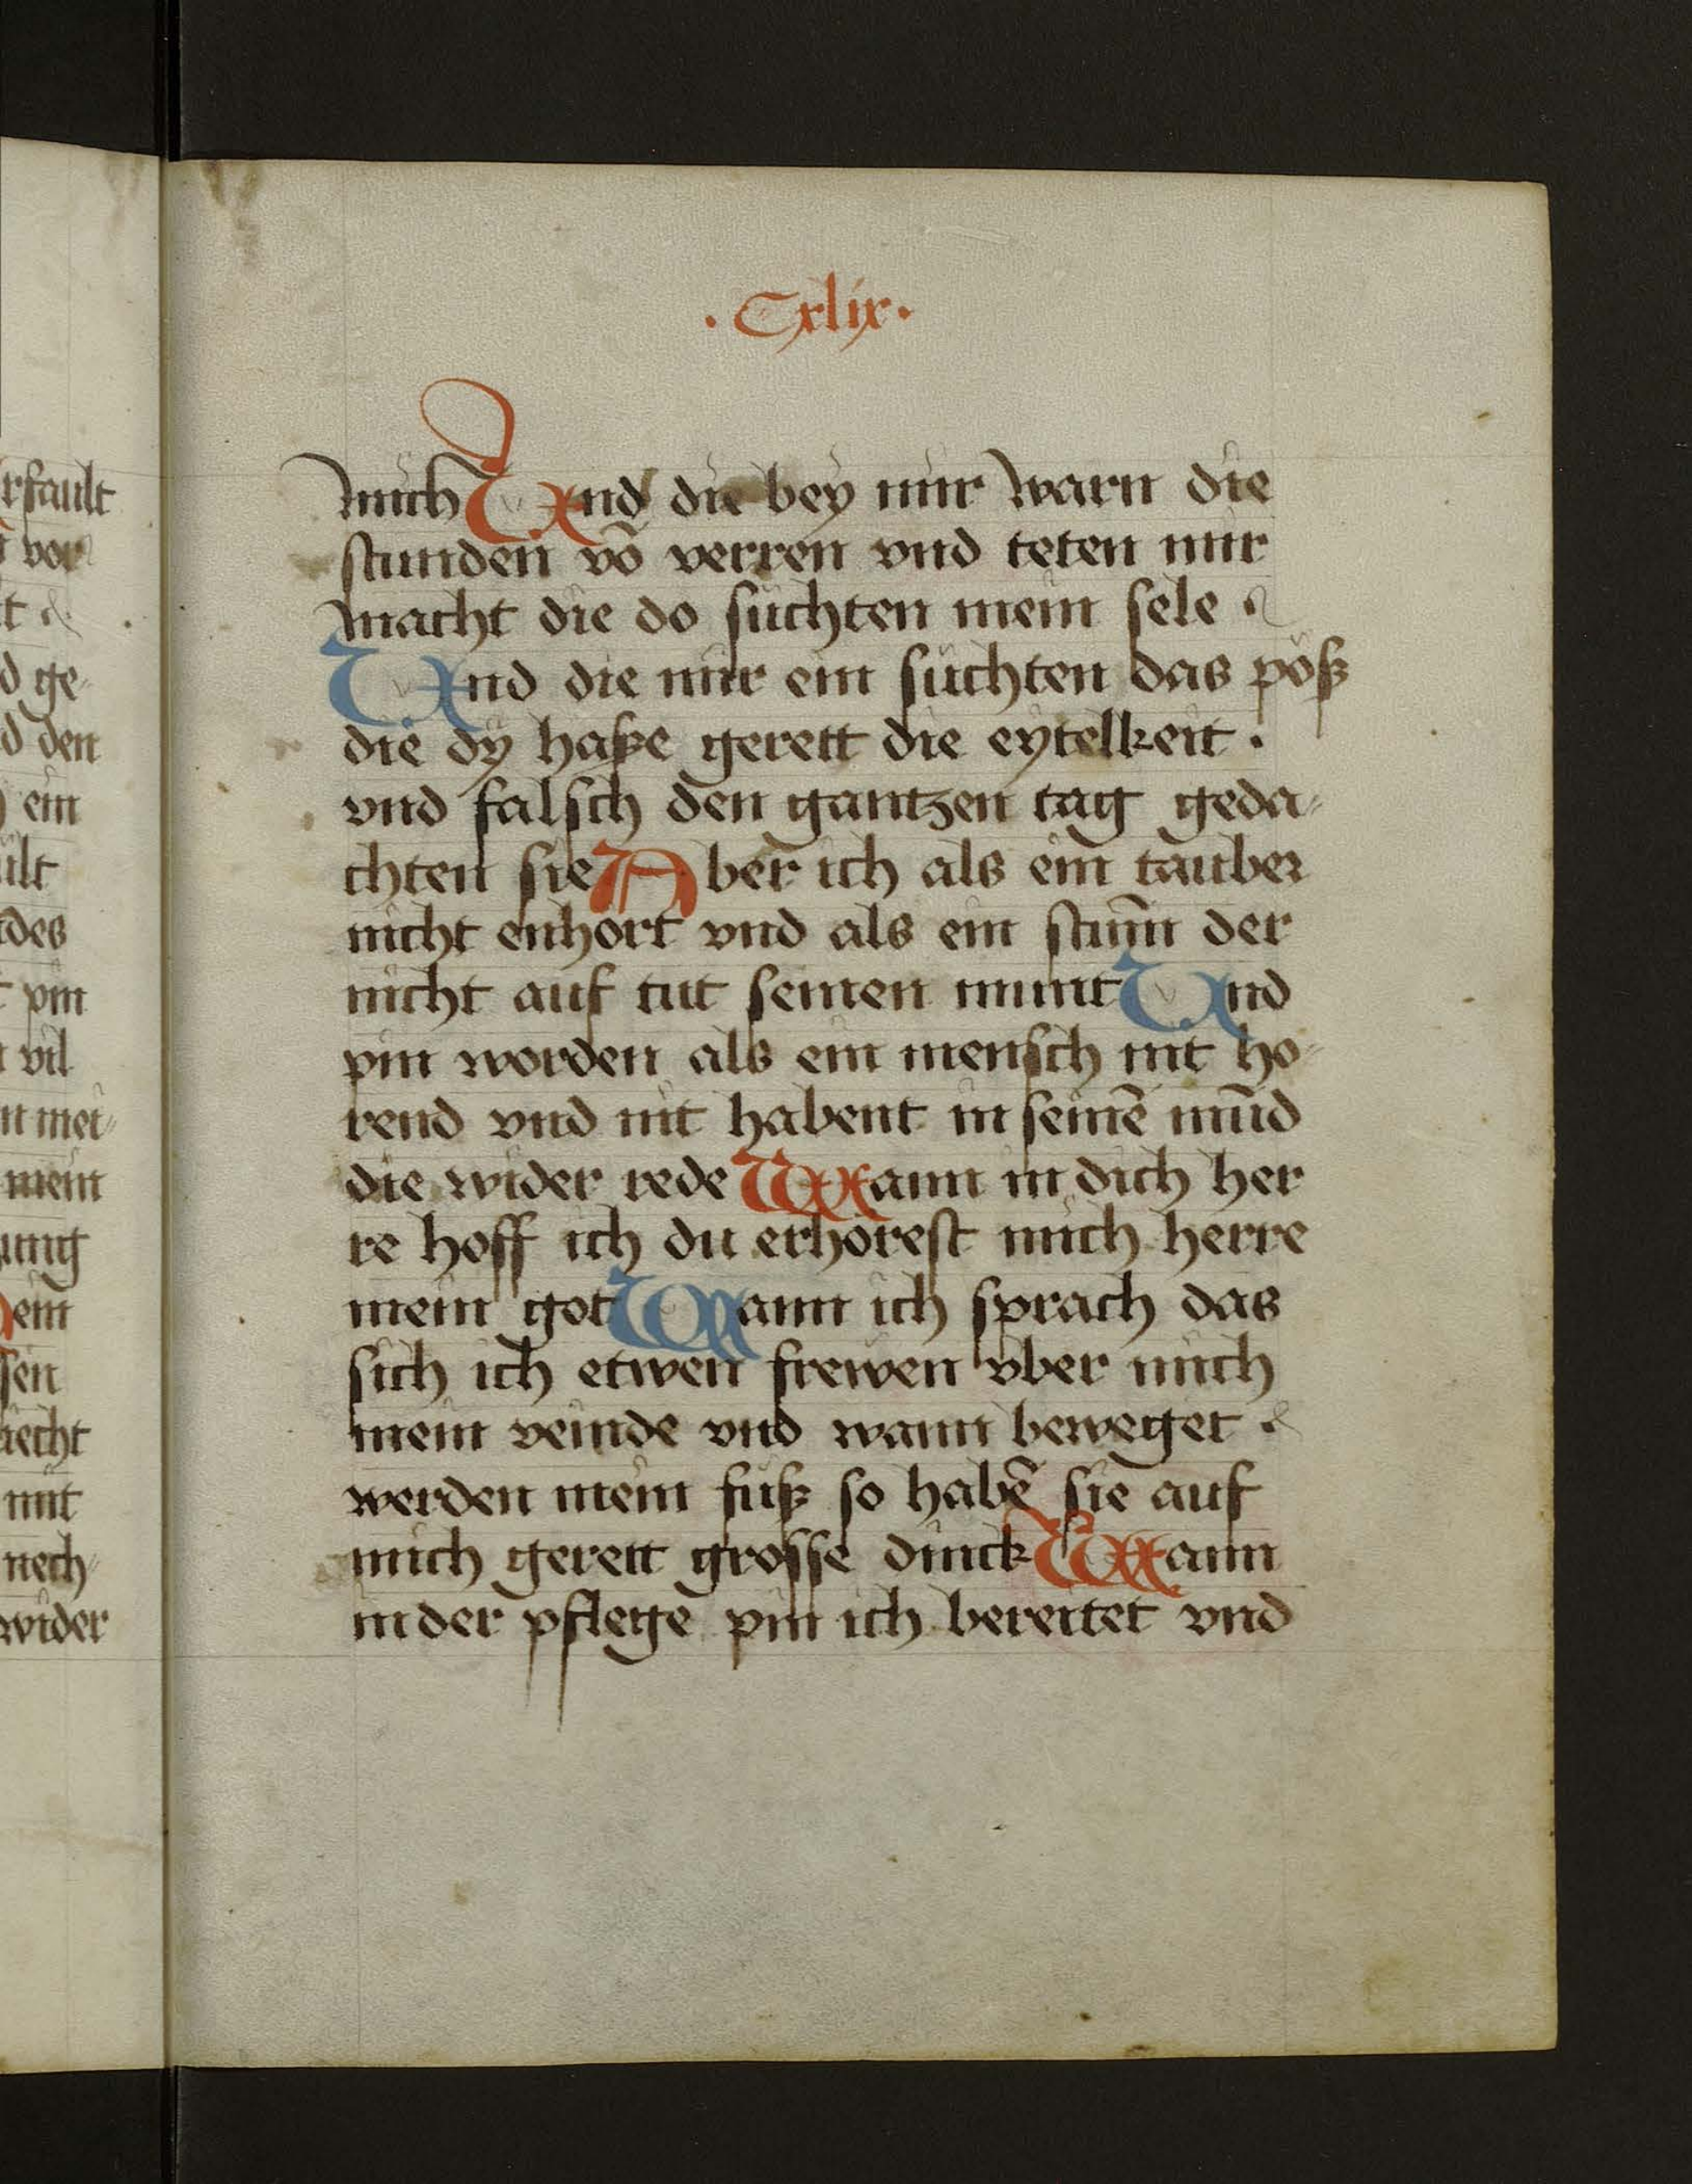 · Cxlix ·
mich Vnd die bey mir warn die
stunden vō verren vnd teten mir
macht die do suchten mein sele
Vnd die mir ein suchten das pöß
die dy haße gerett die eytelkeit .
vnd falsch den gantzen tag geda-
chten sie Aber ich als ein tauber
nicht enhort vnd als ein stum̄ der
nicht auf tut seinen munt Vnd
pin worden als ein mensch nit ho-
rend vnd nit habent in seinē mūd
die wider rede Wann in dich her
re hoff ich du erhorest mich herre
mein got Wann ich sprach das
sich ich etwen frewen vber mich
mein veinde vnd wann beweget
werden mein fuß so habē sie auf
mich gerett grosse dinck Wann
in der pflege pin ich bereitet vnd